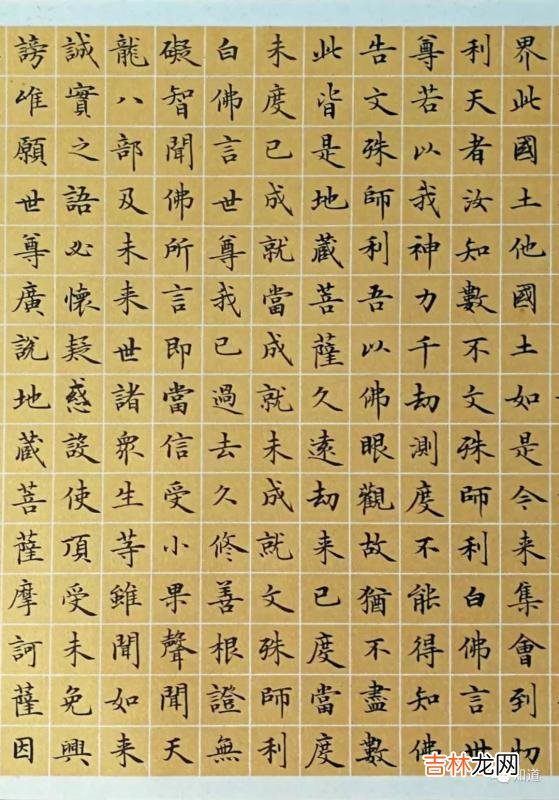 界此國土他國土如是今来集會到忉
利天者汝知數不文殊師利白佛言世
尊若以我神力千劫測度不能得知佛
告文殊師利吾以佛眼觀故猶不盡數
此皆是地藏菩薩久遠劫来已度當度
未度已成就當成就未成就文殊師利
白佛言世尊我已過去久修善根證無
礙智聞佛所言即當信受小果聲聞天
龍八部及未来世諸眾生等雖聞如来
誠實之語必懷疑惑設使頂受未免興
謗唯願世尊廣說地藏菩薩摩訶薩因
知道
吉林龙网